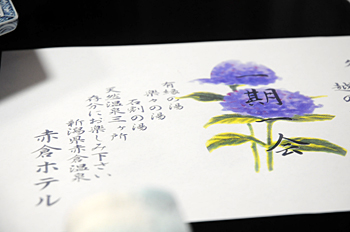 越の
一期一会
有縁の湯
楽々の湯
石割の湯
天然温泉三ヶ所
存分にお楽しみ下さい
新潟県赤倉温泉
赤倉ホテル